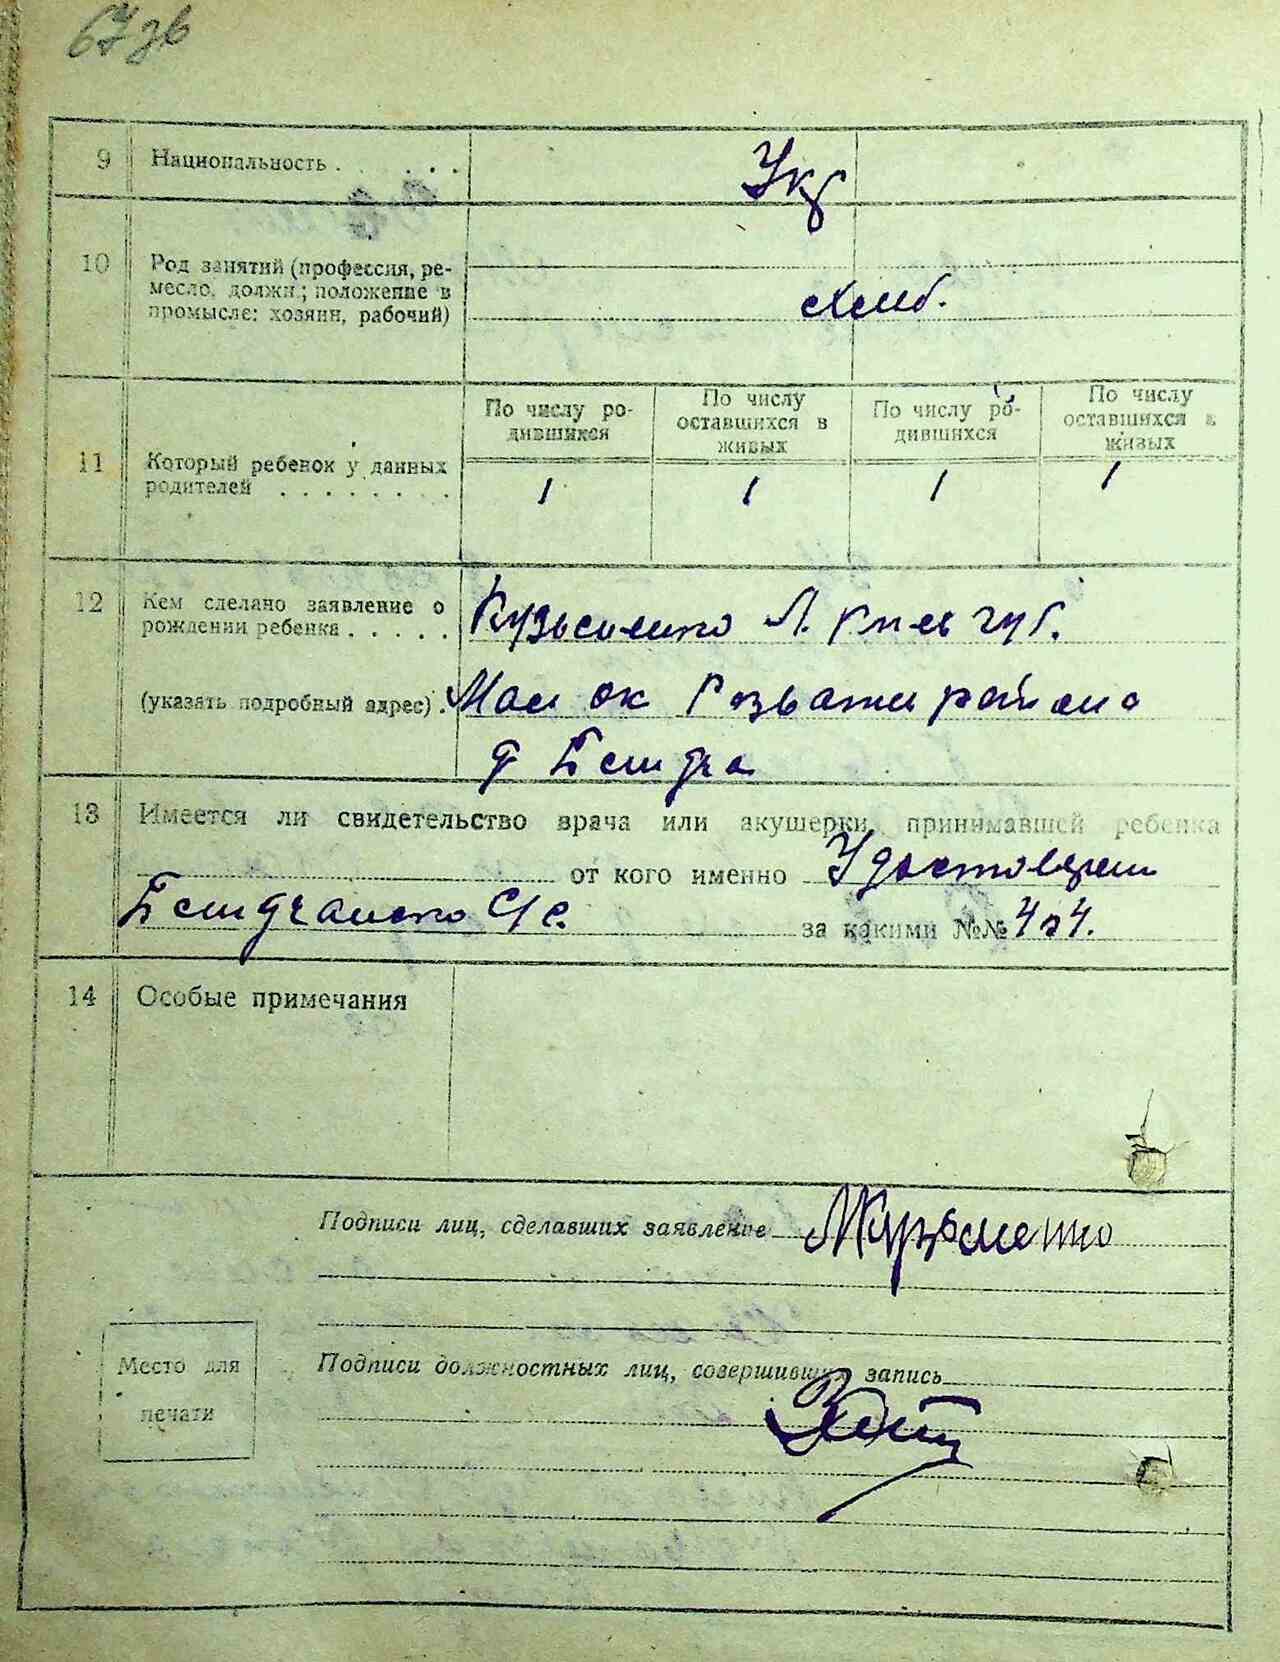 67 зв
9 Национальность . . . . . . Укр
10 Род занятий (профессия, ре-
месло, должн.; положение в
промысле: хозяин, рабочий)
хлеб.
11 Который ребенок у данных
родителей . . . . . . . .
По числу ро-
дившихся
По числу
оставшихся в
живых
По числу ро-
дившихся
По числу
оставшихся в
живых
1 1 1 1
12 Кем сделано заявление о
рождении ребенка . . . . .
(указать подробный адрес) .
Кузьменко Л. Киев губ.
Мал ок Розважи района
д
13 Имеется ли свидетельство врача или акушерки, принимавшей ребенка
от кого именно Удостоверен
С/с. за какими №№ 424.
14 Особые примечания
Подписи лиц, сделавших заявление Кузьменко
Подписи должностных лиц, совершивших запись
Место для
печати